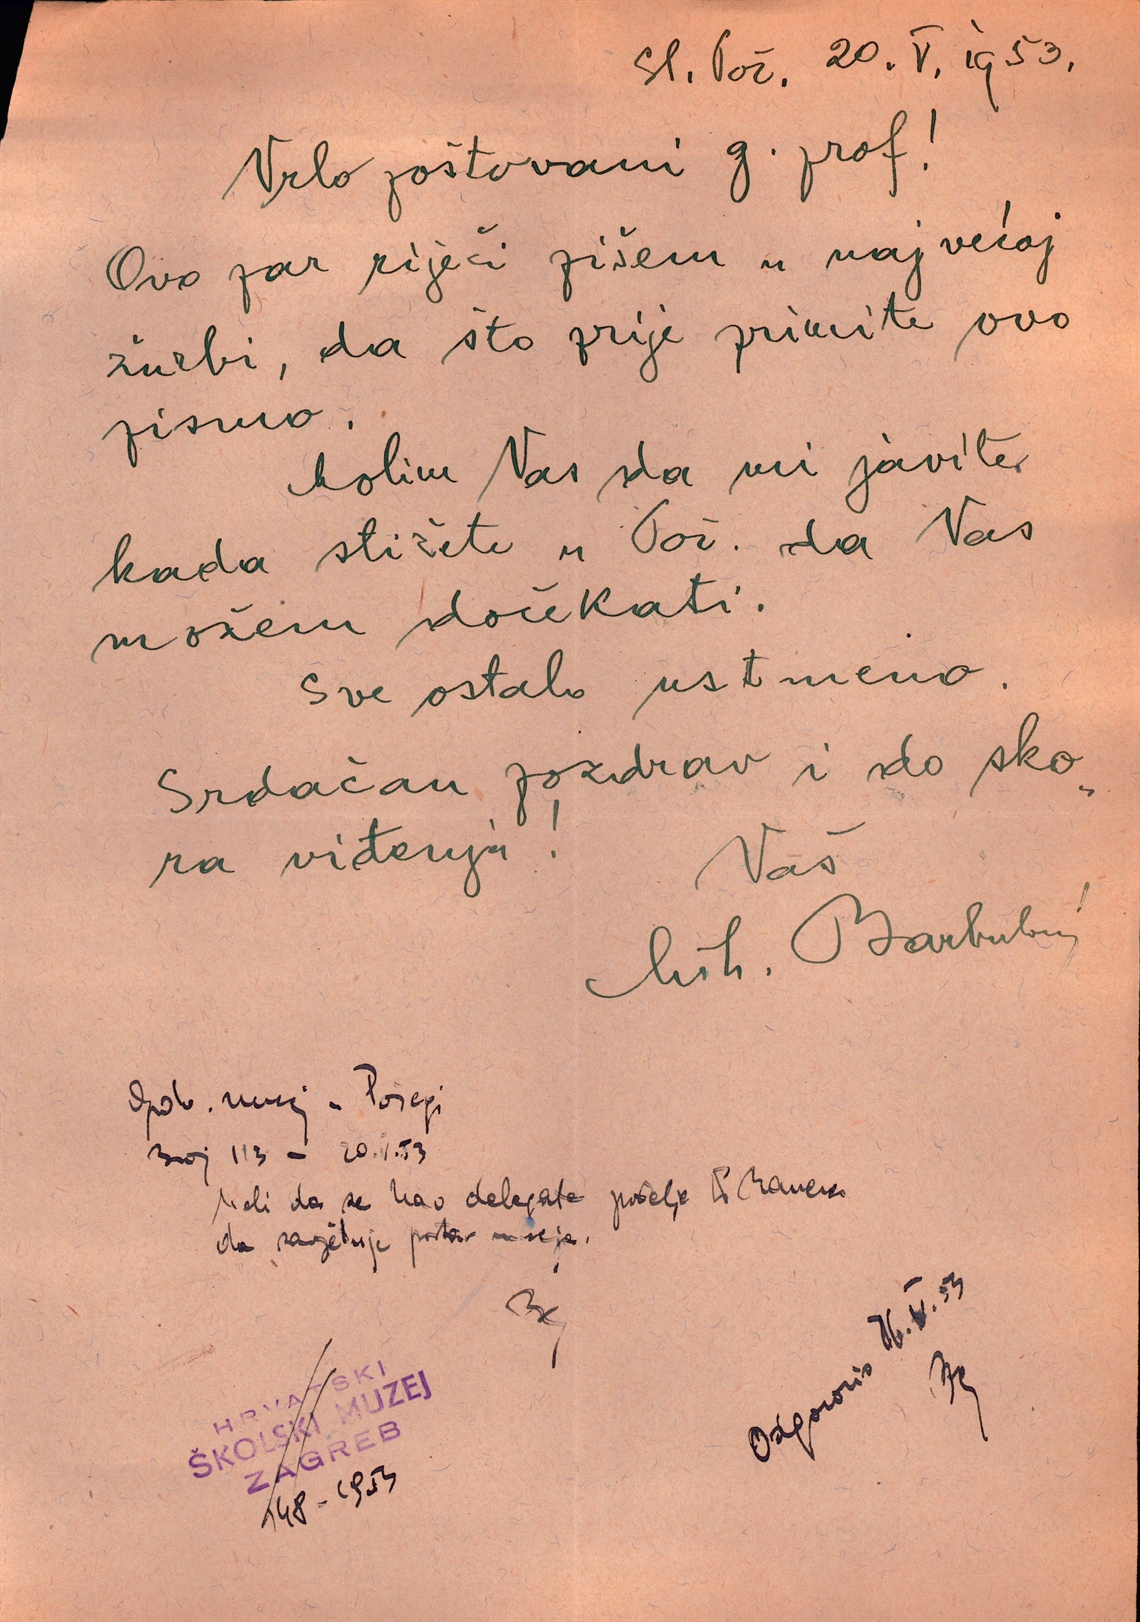 Sl. Pož. 20. V. 1953.
Vrlo poštovani g. prof!
Ovo par riječi pišem u najvećoj
žurbi, da što prije primite ovo
pismo.
Molim Vas da mi javite
kada stižete u Pož. da Vas
možem dočekati.
Sve ostalo ustmeno.
Srdačan pozdrav i do sko„
ra viđenja!
Vaš
Mih. Barbubini
muzej - Požegi
Broj 113 - 20.V.53
Moli da se kao delegate pošelje
da savjetuje postav muzeja.
HRVATSKI
ŠKOLSKI MUZEJ
ZAGREB
148-1953
Odgovoris 26.V.53